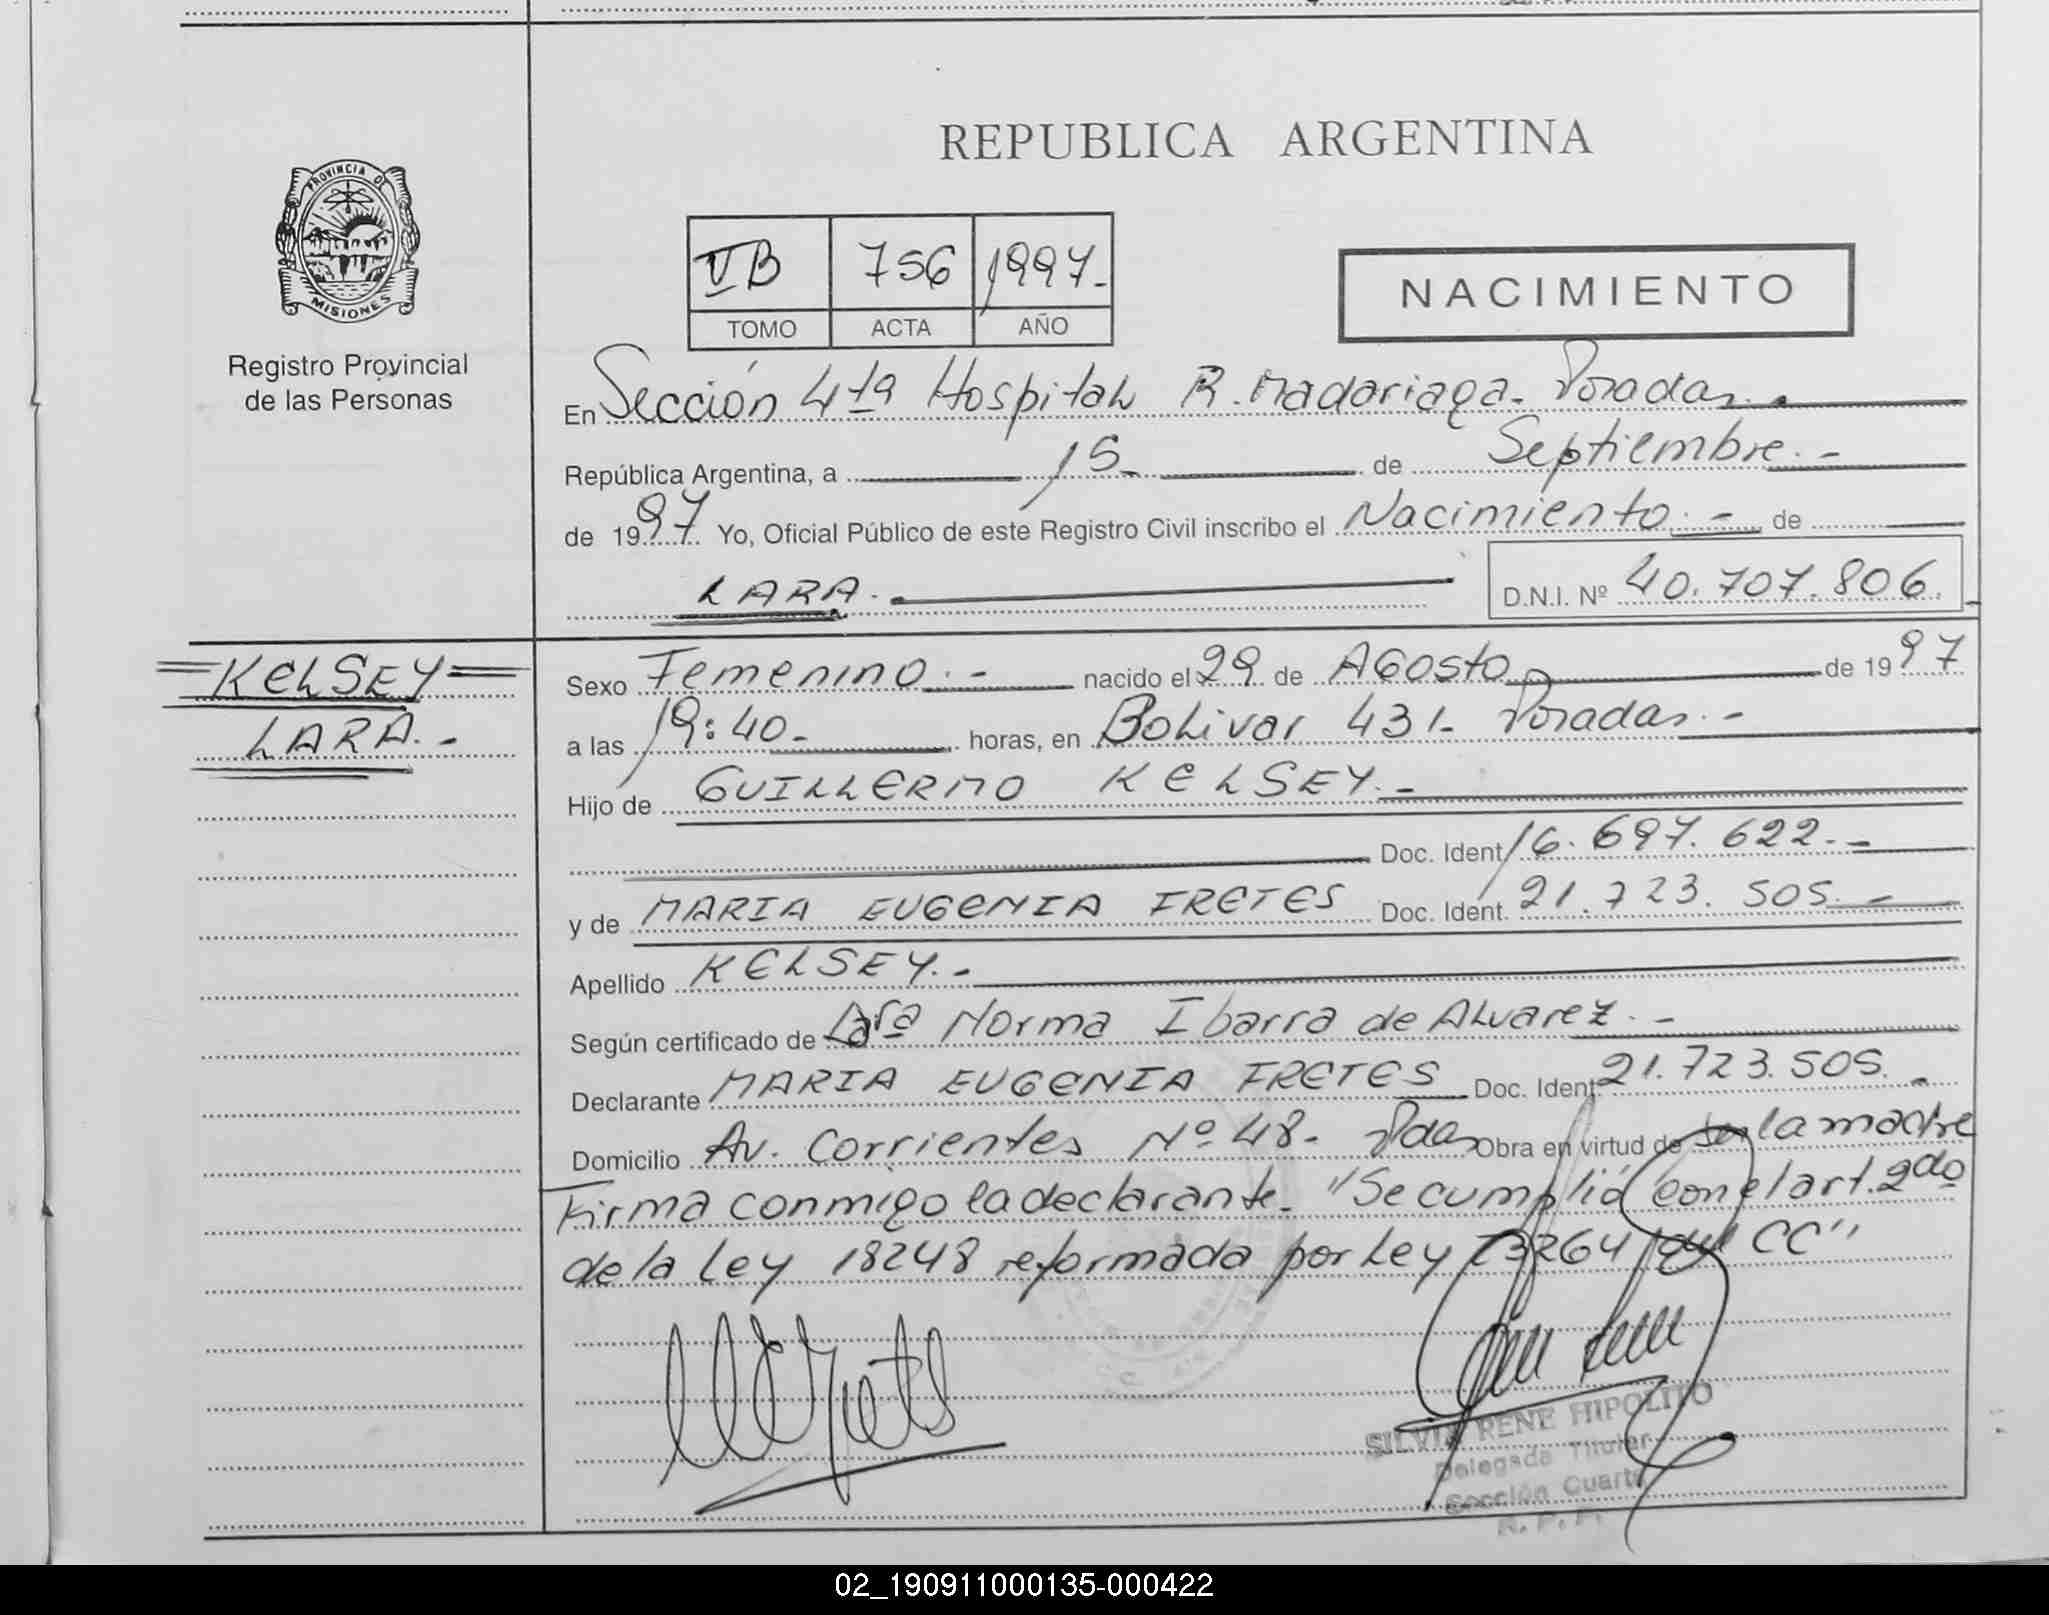 REPUBLICA ARGENTINA
PROVINCIA DE
MISIONES
Registro Provincial
de las Personas
VB 756 1997.-
TOMO ACTA AÑO
NACIMIENTO
En Sección 4ta Hospital R. Madariaga. Posadas.-
República Argentina, a 15.- de Septiembre.-
de 1997 Yo, Oficial Público de este Registro Civil inscribo el Nacimiento.- de
LARA.- D.N.I. Nº 40.707.806.
=KELSEY=
LARA.-
Sexo Femenino.- nacido el 29 de AGosto de 1997
a las 19:40.- horas, en Bolivar 431. Posadas.-
Hijo de GUILLERMO KELSEY.-
Doc. Ident 16.697.622.-
y de MARIA EUGENIA FRETES Doc. Ident. 21.723.505.-
Apellido KELSEY.-
Según certificado de Norma Ibarra de Alvarez.-
Declarante MARIA EUGENIA FRETES Doc. Ident. 21.723.505.-
Domicilio Av. Corrientes Nº 48. Pdas Obra en virtud de ser la madre
Firma conmigo la declarante. "Se cumplió con el art. 2do
de la Ley 18248 reformada por Ley 23264 del CC"
SILVIA RENE HIPOLITO
Delegada Titular
Sección Cuarta
R. P. P.
02_190911000135-000422